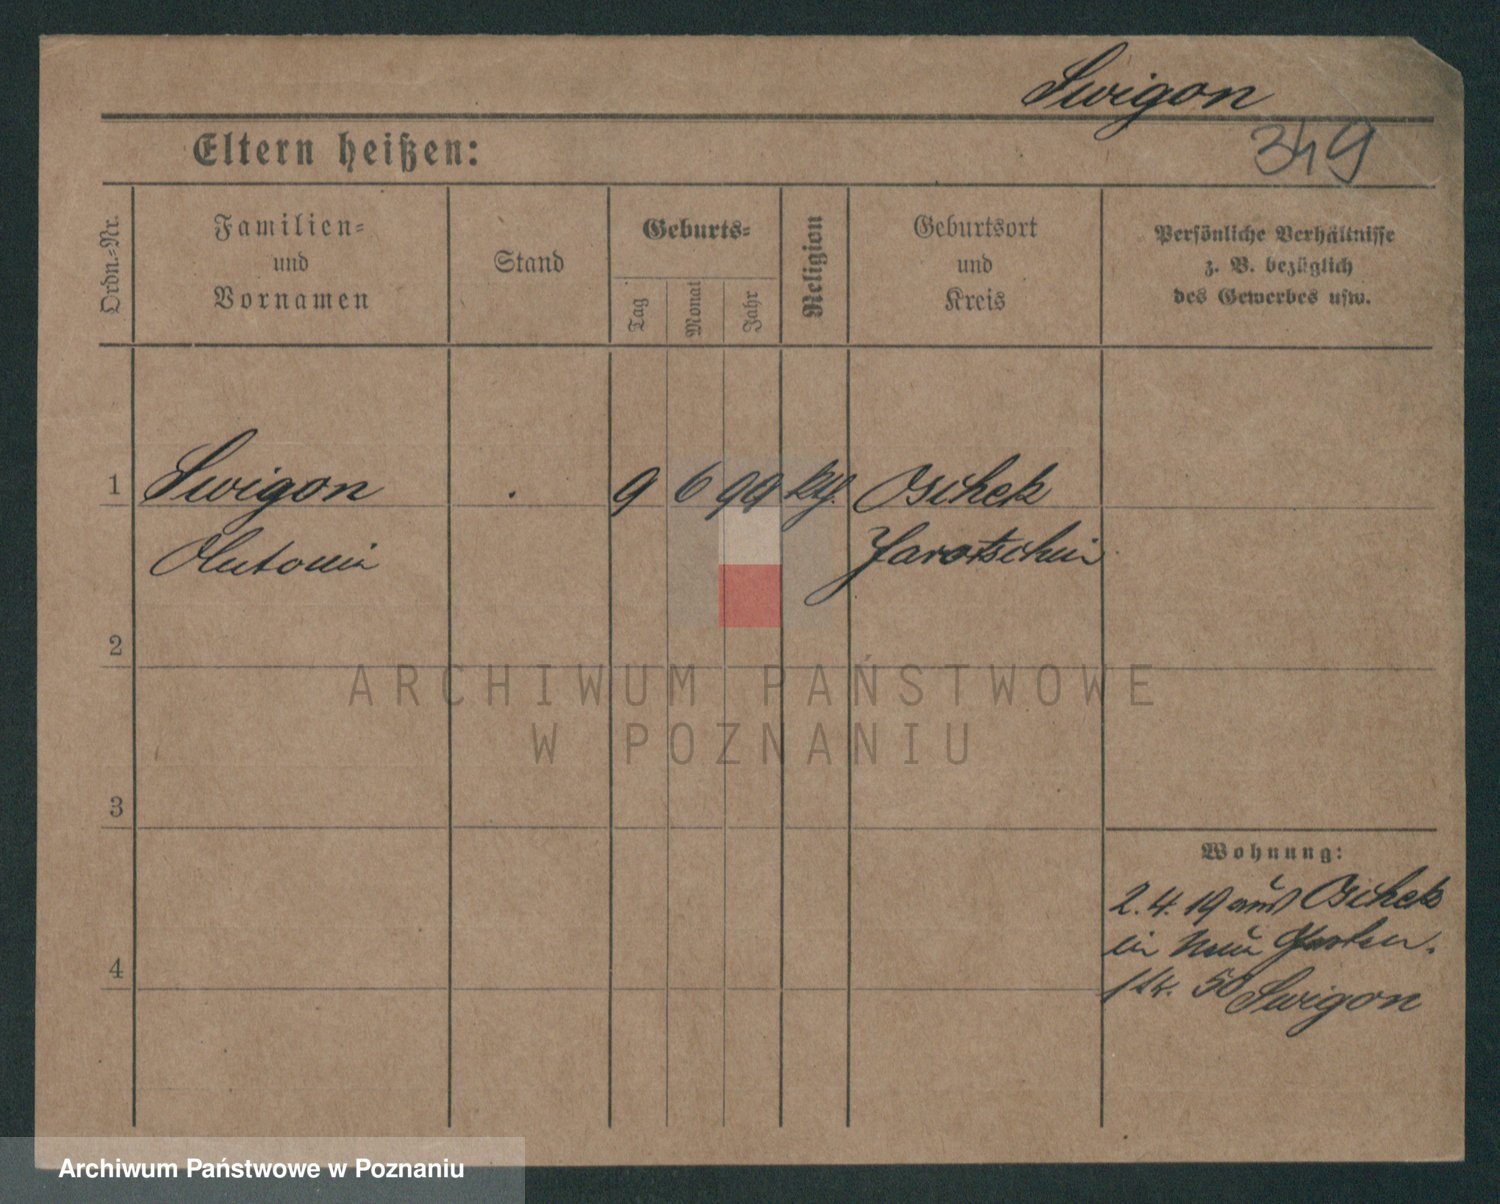 Swigon
349
Eltern heißen:
Ordn.-Nr.
Familien-
und
Vornamen
Stand
Geburts-
Tag
Monat
Jahr
Religion
Geburtsort
und
Kreis
Persönliche Verhältnisse
z. B. bezüglich
des Gewerbes usw.
1 Swigon . 9 6 99 Oschek
Antonin Jarotschin
2
ARCHIWUM PAŃSTWOWE
W POZNANIU
3
Wohnung:
2. 4. 19 aus Oschek
in Neue Garten-
str. 50 Swigon
4
Archiwum Państwowe w Poznaniu